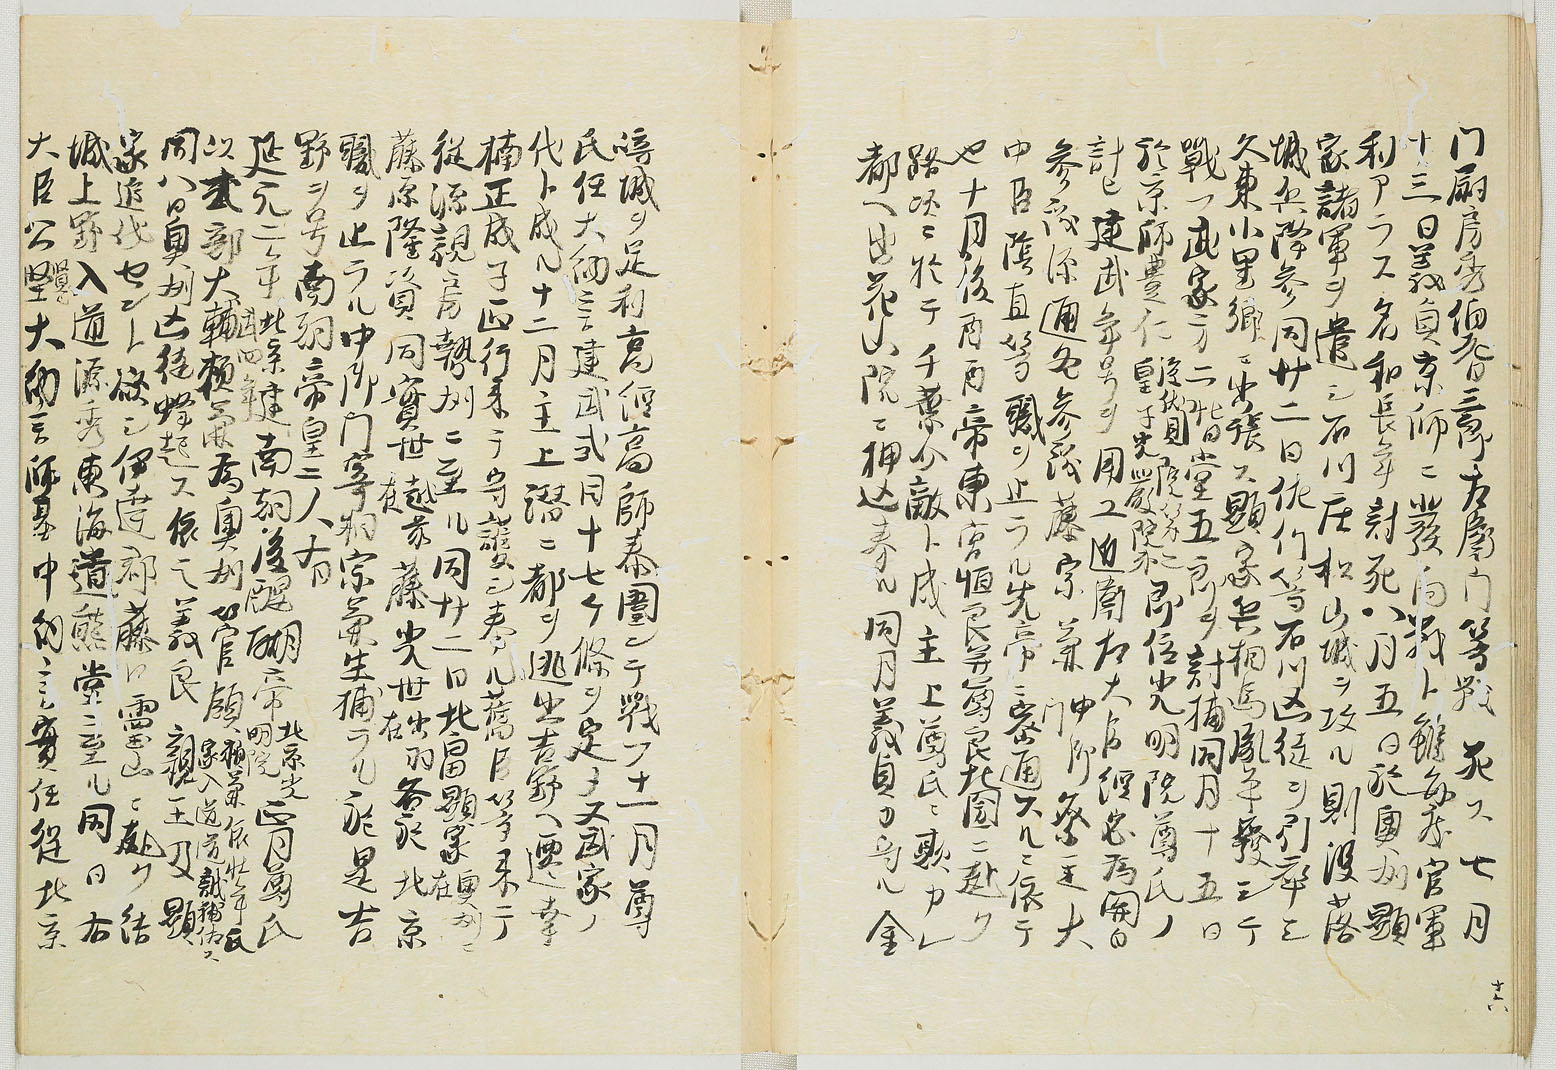 門尉房秀伯耆三郎左衛門等戦死ス七月
十三日義貞京師ニ発向戦ト雖毎度官軍
利アラス名和長年討死八月五日於奥州顕
家諸軍ヲ遣シ石川庄松山城ヲ攻ル則没落
城兵降参同廿二日佐竹等石川凶徒ヲ引率シ
久東小里郷ニ出張ス顕家兵相馬胤平発シテ
戦フ武家方二階堂五郎ヲ討捕同月十五日
於京師豊仁 後伏見院第二皇子光厳院弟 即位光明院尊氏ノ
計也建武年号ヲ用ユ近衛左大臣経忠為関白
参議源通冬参議藤宗兼中御門祭主大
中臣蔭直等職ヲ止ラル先帝ニ密通スルニ依テ
也十月後醍醐帝東宮恒良并尊良北国ニ赴ク
路次ニ於テ千葉介敵ト成主上尊氏ニ欺カレ
都ヘ出花山院ニ押込奉ル同月義貞カ守ル金
崎城ヲ足利高経高師泰囲シテ戦フ十一月尊
氏任大納言建武式目十七ケ條ヲ定ム又武家ノ
代ト成ル十二月主上潜ニ都ヲ逃出吉野ヘ遷幸
楠正成子正行来テ守護シ奉ル旧臣等来テ
従源親房勢州ニ至ル同廿二日北畠顕家在奥州ニ
藤原隆資同実世在越前藤光世在出羽各於北京
職ヲ止ラル中御門宰相宗兼生捕ラル於是吉
野ヲ号南朝帝皇二人有
延元二年 北京建武四年 南朝後醍醐帝 北京光明院 正月尊氏
以式部大輔頼兼為奥州管領 頼兼依壮年氏家入道道誠輔佐ス
同八日奥州凶徒蜂起ス依之義良親王及顕
家追伐セント欲シ伊達郡藤口霊山ニ赴ク結
城上野入道源秀東海道熊堂ニ至ル同日右
大臣公賢大納言師基中納言実任従北京
十六